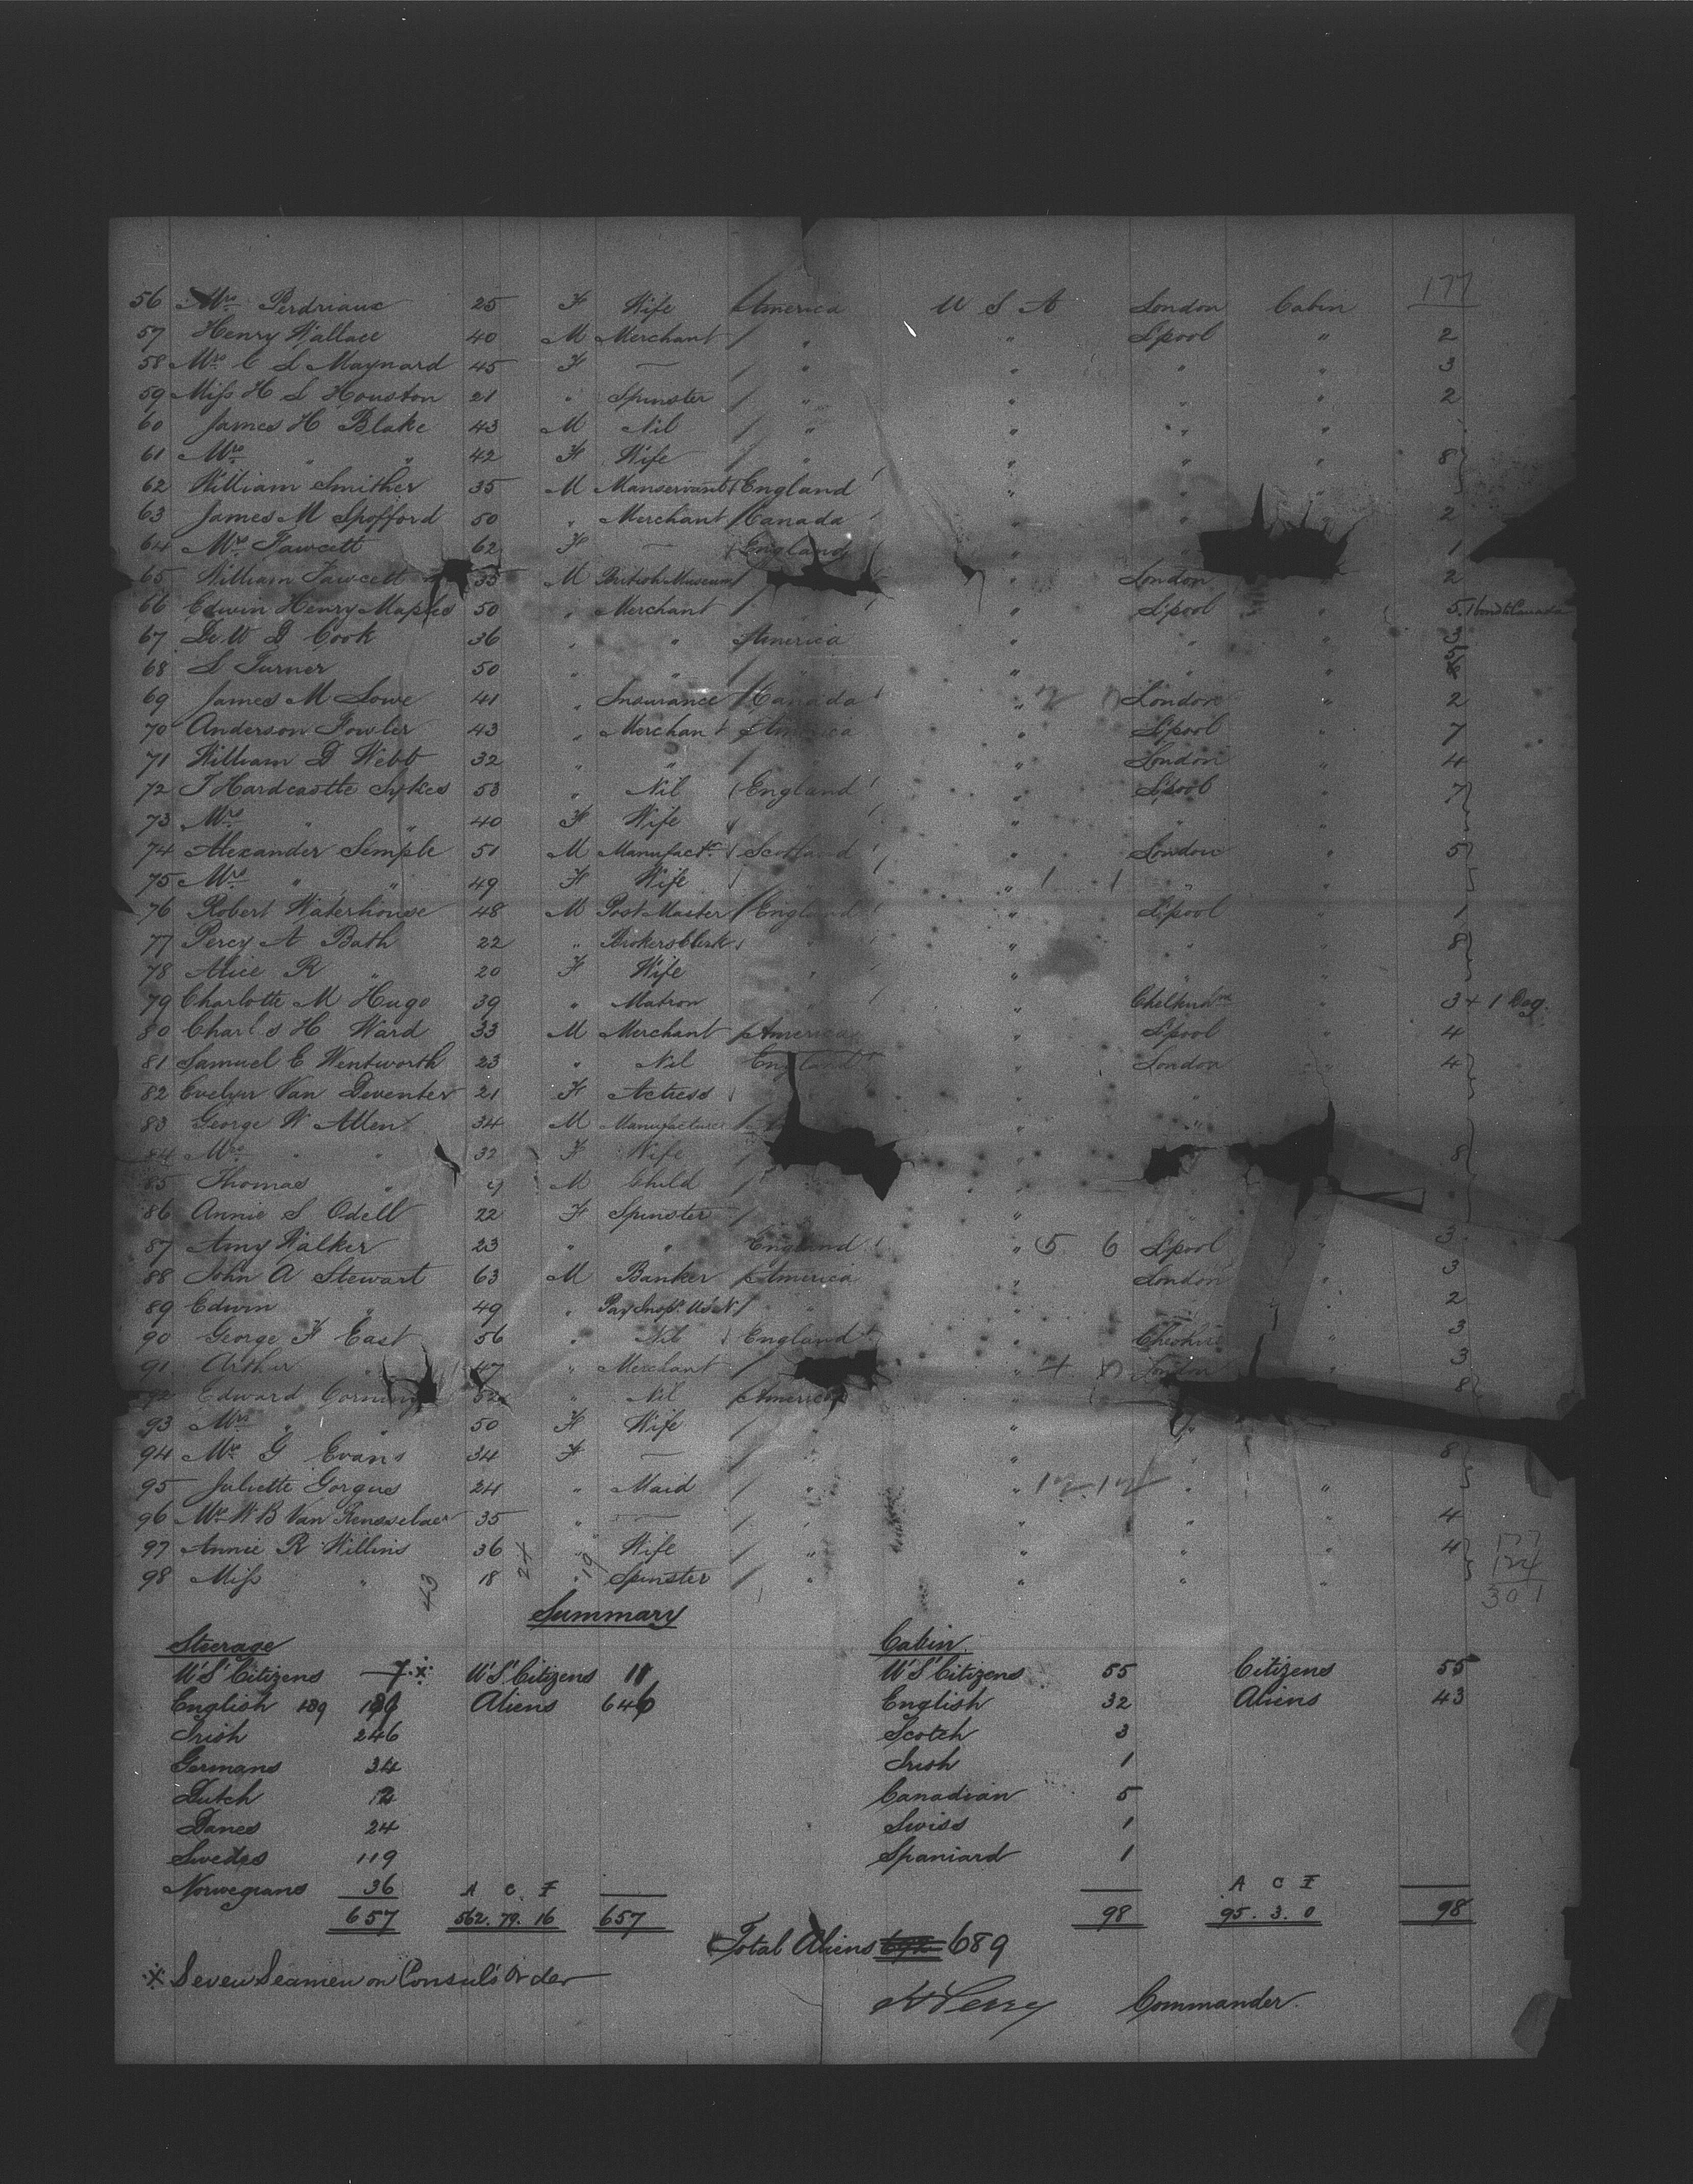 177
56 Mrs Perdriaux 25 F Wife America U S A London Cabin
57 Henry Wallace 40 M Merchant / " " L'pool " 2
58 Mrs C L Maynard 45 F — / " " " " 3
59 Miss H L Houston 21 " Spinster / " " " " 2
60 James H Blake 43 M Nil / " " " "
61 Mrs " " 42 F Wife / " " " " 8
62 William Smither 35 M Manservant England " " "
63 James M Spofford 50 " Merchant Canada " " 2
64 Mrs Fawcett 62 F — England " " 1
65 William Fawcett 35 M British Museum / " London " 2
66 Edwin Henry Maples 50 " Merchant " L'pool " 5
67 De W D Cook 36 " " America " " " 3
68 L Turner 50 " " / " " " "
69 James M Lowe 41 " Insurance Canada " London " 2
70 Anderson Fowler 43 " Merchant America " L'pool " 7
71 William D Webb 32 " " / " London " 4
72 T Hardcastle Sykes 53 " Nil England " L'pool " 7
73 Mrs " " 40 F Wife " " " "
74 Alexander Semple 51 M Manufactr Scotland " London " 5
75 Mrs " " 49 F Wife " " 1 1 " "
76 Robert Waterhouse 48 M Post Master England " L'pool " 1
77 Percy A Bath 22 " Brokers Clerk " " " " 8
78 Alice R " 20 F Wife " " " "
79 Charlotte M Hugo 39 " Matron " " " 3 + 1 Dog.
80 Charl's H Ward 33 M Merchant America " L'pool " 4
81 Samuel E Wentworth 23 " Nil England " London " 4
82 Evelyn Van Deventer 21 F Actress " "
83 George W Allen 34 M Manufacturer "
84 Mrs " " 32 F Wife / 8
85 Thomas " M Child /
86 Annie S Odell 22 F Spinster / "
87 Amy Walker 23 " " England " 5 6 L'pool " 3
88 John A Stewart 63 M Banker America " London 3
89 Edwin " 49 " Pay Insp. U.S.N / " " " 2
90 George F East 56 " Nil England " Cheshire " 3
91 Arthur " 47 " Merchant / " London 3
92 Edward Corning 52 " Nil America 8
93 Mrs " 50 F Wife / " " "
94 Mrs G Evans 34 F — / " " " 8
95 Juliette Gorgus 24 " Maid / " " 12 12 " "
96 Mrs W B Van Rensselaer 35 " — / " " " " 4
97 Annie R Willins 36 " Wife / " " " " 4
98 Miss " 18 " Spinster / " " " "
43 24 19
177
124
301
Summary
Steerage Cabin
U'S' Citizens 7 ※ U'S' Citizens 11 U'S' Citizens 55 Citizens 55
English 189 Aliens 646 English 32 Aliens 43
Irish 246 Scotch 3
Germans 34 Irish 1
Dutch Canadian 5
Danes 24 Swiss 1
Swedes 119 Spaniard 1
Norwegians 36 A C I A C I
657 562. 79. 16 657 98 95. 3. 0 98
Total Aliens 689
※ Seven Seamen on Consul's Order
H Perry Commander.